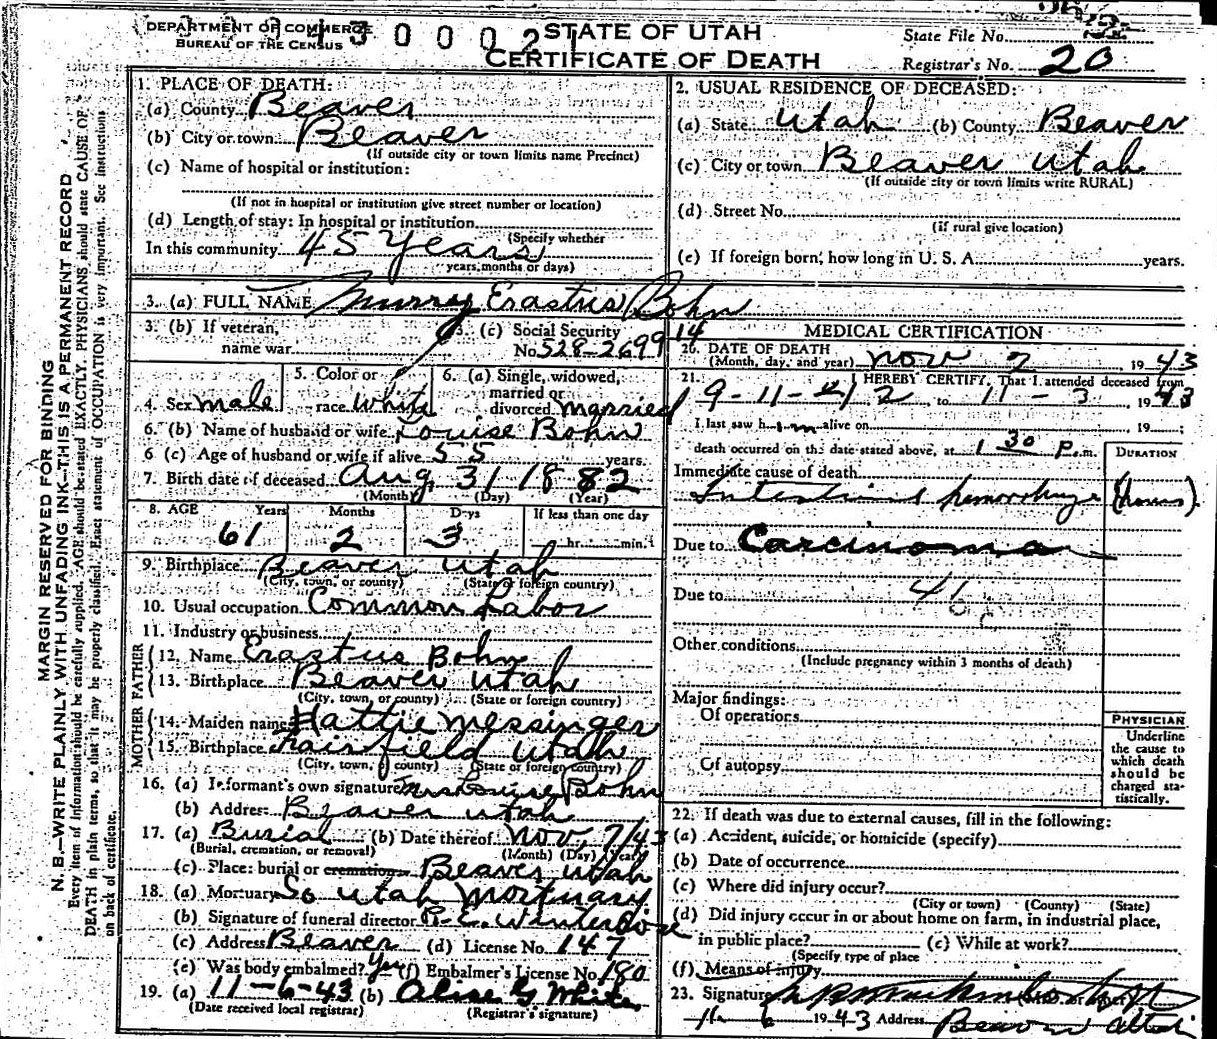 DEPARTMENT OF COMMERCE
BUREAU OF THE CENSUS
3 0 0 0 2 1
STATE OF UTAH
CERTIFICATE OF DEATH
State File No.
Registrar's No. 20
MARGIN RESERVED FOR BINDING
N. B.—WRITE PLAINLY WITH UNFADING INK—THIS IS A PERMANENT RECORD
Every item of information should be carefully supplied. AGE should be stated EXACTLY. PHYSICIANS should state CAUSE OF
DEATH in plain terms, so that it may be properly classified. Exact statement of OCCUPATION is very important. See instructions
on back of certificate.
1. PLACE OF DEATH:
(a) County Beaver
(b) City or town Beaver
(If outside city or town limits name Precinct)
(c) Name of hospital or institution:
(If not in hospital or institution give street number or location)
(d) Length of stay: In hospital or institution
(Specify whether
In this community 45 Years
years, months or days)
2. USUAL RESIDENCE OF DECEASED:
(a) State Utah (b) County Beaver
(c) City or town Beaver Utah
(If outside city or town limits write RURAL)
(d) Street No.
(If rural give location)
(e) If foreign born, how long in U. S. A. years.
3. (a) FULL NAME Murry Erastus Bohn
3. (b) If veteran,
name war
3. (c) Social Security
No. 528-2699 14
4. Sex male
5. Color or
race White
6. (a) Single, widowed,
married or
divorced married
6. (b) Name of husband or wife Louise Bohn
6 (c) Age of husband or wife if alive 55 years.
7. Birth date of deceased Aug 31 1882
(Month) (Day) (Year)
8. AGE Years Months Days If less than one day
61 2 3 hr. min.
9. Birthplace Beaver Utah
(City, town, or county) (State or foreign country)
10. Usual occupation Common Labor
11. Industry or business
FATHER
12. Name Erastus Bohn
13. Birthplace Beaver Utah
(City, town, or county) (State or foreign country)
MOTHER
14. Maiden name Hattie Messinger
15. Birthplace Fairfield Utah
(City, town, or county) (State or foreign country)
16. (a) Informant's own signature Mrs Louise Bohn
(b) Address Beaver Utah
17. (a) Burial (b) Date thereof Nov, 7/43
(Burial, cremation, or removal) (Month) (Day) (Year)
(c) Place: burial or cremation Beaver Utah
18. (a) Mortuary So Utah Mortuary
(b) Signature of funeral director
(c) Address Beaver (d) License No. 147
(e) Was body embalmed? Yes (f) Embalmer's License No. 180
19. (a) 11-6-43 (b) Alise G White
(Date received local registrar) (Registrar's signature)
MEDICAL CERTIFICATION
20. DATE OF DEATH
(Month, day, and year) Nov 2 1943
21. I HEREBY CERTIFY, That I attended deceased from
9-11-42, to 11-3, 1943
I last saw him alive on 19 ;
death occurred on the date stated above, at 1 30 P.m.
DURATION
Immediate cause of death
Intestinal hemorrhage (hours).
Due to Carcinoma
Due to
Other conditions
(Include pregnancy within 3 months of death)
Major findings:
Of operations
Of autopsy
PHYSICIAN
Underline
the cause to
which death
should be
charged sta-
tistically.
22. If death was due to external causes, fill in the following:
(a) Accident, suicide, or homicide (specify)
(b) Date of occurrence
(c) Where did injury occur?
(City or town) (County) (State)
(d) Did injury occur in or about home on farm, in industrial place,
in public place? (e) While at work?
(Specify type of place
(f) Means of injury
23. Signature
11-6 1943 Address Beaver Utah